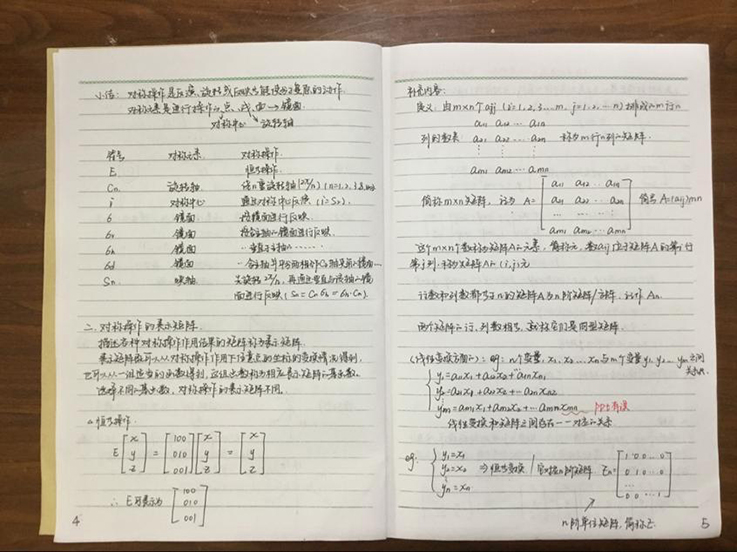 小结: 对称操作是反演、旋转或反映等能使分子复原的动作.
对称元素是进行操作的点、线、面→镜面.
对称中心 旋转轴
符号 对称元素 对称操作.
E 恒等操作.
Cn 旋转轴 绕n重旋转轴(2π/n) (n=1,2,3
i 对称中心 通过对称中心反演 (i=S2).
σ 镜面 按镜面进行反映.
σv 镜面 按含主轴的镜面进行反映
σh 镜面 …垂直于主轴的……
σd 镜面 …含主轴并平分两相邻C2轴夹角的镜面…
Sn 映轴 先旋转2π/n, 再通过垂直与该轴的镜
面进行反映(Sn=Cnσh=σh·Cn).
二. 对称操作的表示矩阵.
描述各种对称操作作用结果的矩阵称为表示矩阵.
表示矩阵既可以从对称操作作用下任意点的坐标的变换情况得到,
也可以从一组适当的函数得到,这组函数称为相应表示矩阵的基函数.
选择不同的基函数,对称操作的表示矩阵不同.
恒等操作.
E [x y z] = [100 010 001] [x y z] = [x y z]
∴ E可表示为 [100 010 001]
4
补充内容:
定义: 由m×n个aij (i=1,2,3…m, j=1,2,…n) 排成的m行n
a11 a12 … a1n
列的数表 a21 a22 … a2n 称为m行n列的矩阵.
am1 am2 … amn
简称m×n矩阵, 记为 A= [a11 a12 … a1n a21 a22 … a2n am1 am2 … amn] 简写 A=(aij)mn
这个m×n个数称为矩阵A的元素, 简称元, 数aij位于矩阵A的第i行
第j列, 称为矩阵A的(i,j)元
行数和列数都等于n的矩阵A为n阶矩阵/方阵, 记作An.
两个矩阵的行、列数相等, 就称它们是同型矩阵.
(线性变换方面的): eg: n个变量, x1, x2, … xn与m个变量y1, y2… ym之间
关系式.
y1=a11x1+a12x2+a1nxn1
y2=a21x1+a22x2+…a2nxn2
ym=am1x1+am2x2+…amnxmn PPT有误
线性变换和矩阵之间存在一一对应的关系
eg: y1=x1
y2=x2 → 恒等变换 它对应n阶矩阵 En= [1 0 0 … 0 0 1 0 … 0 … 0 0 … 1]
yn=xn
n阶单位矩阵, 简称E.
5